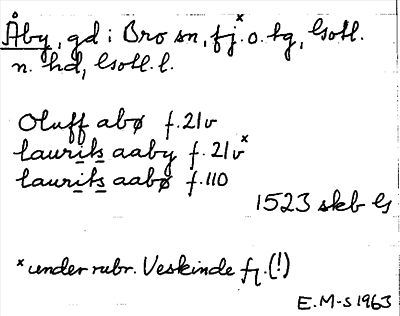 Åby, gd i Bro sn, fj.ˣ o. tg, Gotl.
n. hd, Gotl. l.
Oluff abø f. 21v
laurits aaby f. 21vˣ
laurits aabø f. 110
1523 skb G
ˣ under rubr. Veskinde fj.(!)
E.M-S 1963